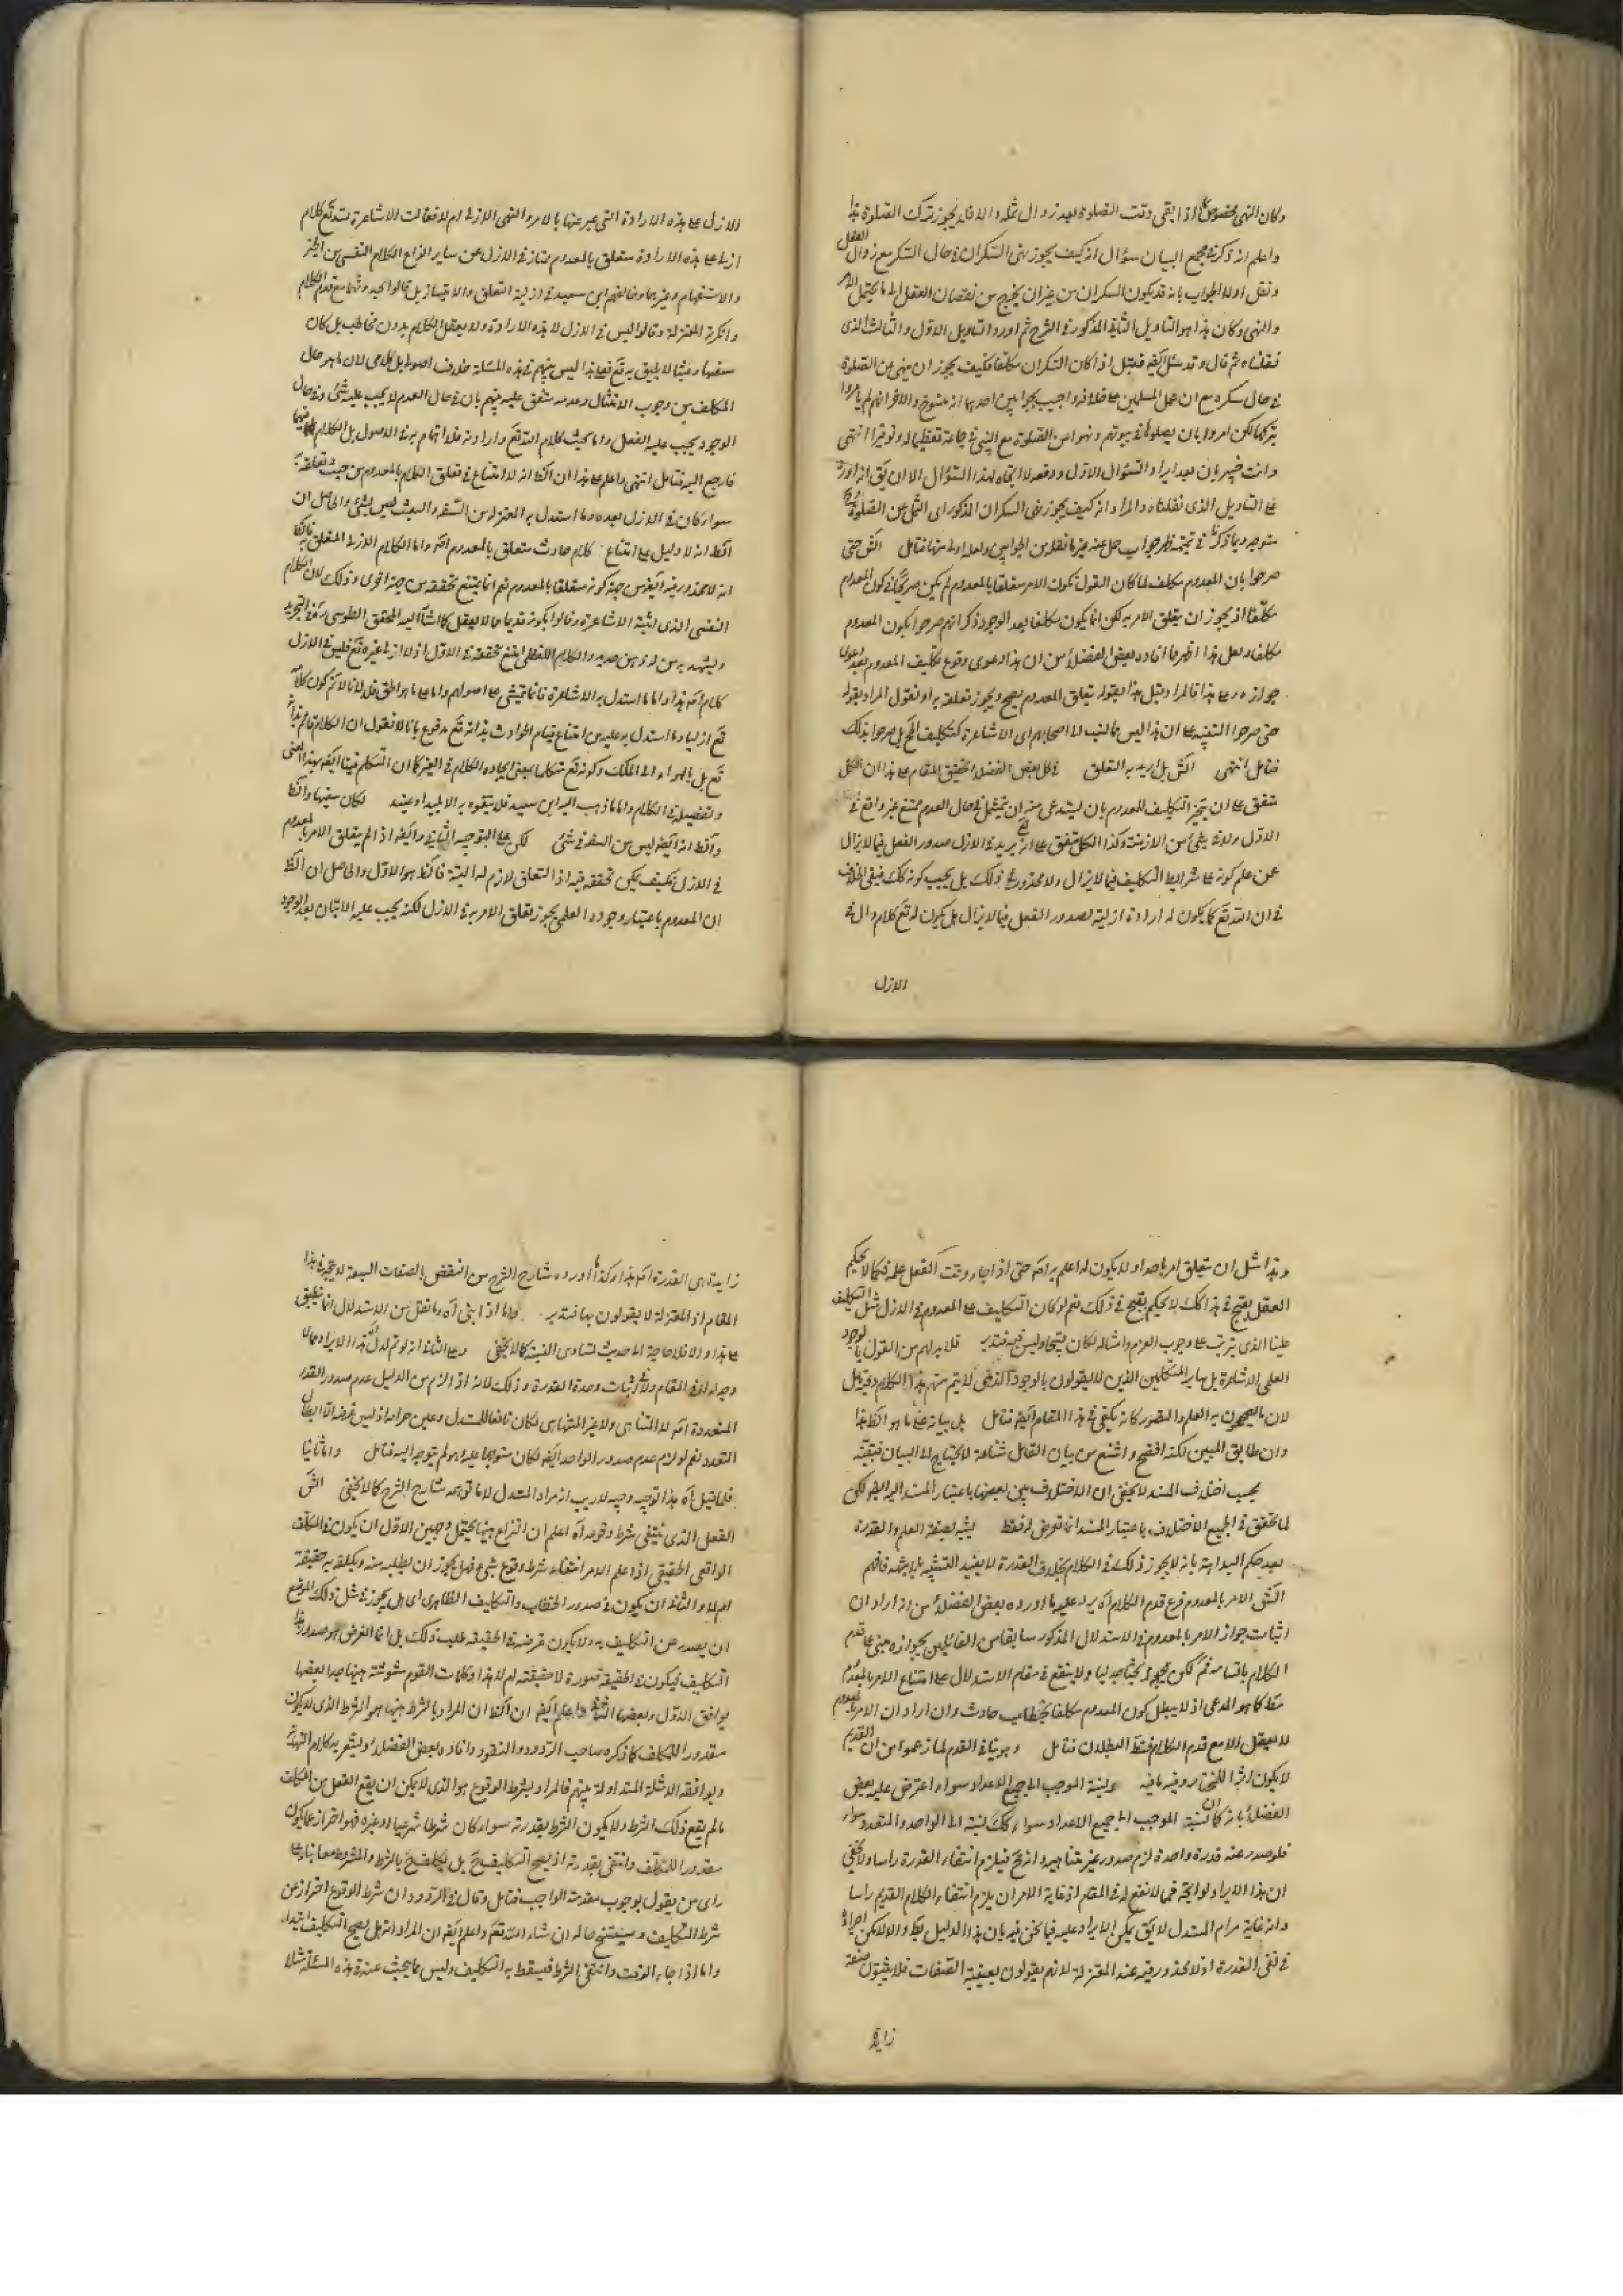 وكان النهى مخصوصا اذا بقى وقت الصلوة بعد زوال ثمله والا فلا يجوز ترك الصلوة هذا
واعلم انه ذكر فى مجمع البيان سؤال انه كيف يجوز نهى السكران فى حال السكر مع زوال العقل
ونقل اولا الجواب بانه قد يكون السكران من غير ان يخرج من نقصان العقل الى ما لا يحتمل الامر
والنهى وكان هذا هو التاويل الثانى المذكور فى الشرح ثم اورد التاويل الاول والثالث الذى
نقلناه ثم قال وقد سئل ايضا فقيل اذا كان السكران مكلفا فكيف يجوز ان ينهى عن الصلوة
فى حال سكره مع ان عمل المسلمين على خلافه واجيب بجوابين احدهما انه منسوخ والاخر انهم لم يامروا
بتركها لكن امروا بان يصلوها فى بيوتهم ونهوا عن الصلوة مع النبى فى جماعة تعظيما له وتوقيرا انتهى
وانت خبير بان بعد ايراد السؤال الاول ودفعه لا اتجاه لهذا السؤال الا ان يق انه اورد
على التاويل الذى نقلناه والمراد انه كيف يجوز نهى السكران المذكور اى الثمل عن الصلوة
متوجه وبما ذكرنا فى تتمته ظهر جواب حل عنه غير ما نقله من الجوابين ولعله اولى منها فتامل الش حتى
صرحوا بان المعدوم مكلف لما كان القول بكون الامر متعلقا بالمعدوم لم يكن صريحا فى كون المعدوم
مكلفا اذ يجوز ان يتعلق الامر به لكن انما يكون مكلفا بعد الوجود ذكر انهم صرحوا بكون المعدوم
مكلفا ولعل هذا اظهر مما افاده بعض الفضلاء من ان هذا دعوى وقوع تكليف المعدوم بعد دعوى
جوازه وعلى هذا فالمراد قبل هذا بقوله تعلق المعدوم يصح ويجوز تعلقه به او نقول المراد بقوله
حتى صرحوا التنبيه على ان هذا ليس مما نسب الى اصحابهم اى الاشاعرة كتكليف المحال بل صرحوا بذلك
فتامل انتهى الش بل اريد به التعلق قال بعض الفضلاء تحقيق المقام على هذا ان الكل
متفق على ان تنجيز التكليف للمعدوم بان يستدعى منه ان يمتثل فى حال العدم ممتنع غير واقع فى
الازل ولا فى شئ من الازمنة وكذا الكل متفق على انه يريد فى الازل صدور الفعل فيما لا يزال
عمن علم كونه على شرايط التكليف فيما لا يزال ولا محذور فى ذلك بل يجب كونه كك فبقى الخلاف
فى ان الله تع كما يكون له ارادة ازلية لصدور الفعل فيما لا يزال هل يكون له تع كلام دال فى
الازل
الازل على هذه الارادة التى عبر عنها بالامر والنهى الازلى ام لا فقالت الاشاعرة لله تع كلام
ازلى على هذه الارادة متعلق بالمعدوم ممتاز فى الازل عن ساير انواع الكلام النفسى من الخبر
والاستفهام وغيرهما وخالفهم ابن سعيد فى ازلية التعلق والامتياز بل قالوا بحدوثهما مع قدم الكلام
وانكره المعتزلة وقالوا ليس فى الازل الا هذه الارادة ولا يعقل الكلام بدون مخاطب بل كان
سفها وعبثا لا يليق به تع فهذا ليس بينهم فى هذه المسئلة خلاف اصولى بل كلامى لان ما هو حال
المكلف من وجوب الامتثال وعدمه متفق عليه بينهم بان فى حال العدم لا يجب عليه شئ وفى حال
الوجود يجب عليه الفعل واما بحث كلام الله تع وارادته فلا اهتمام به فى الاصول بل الكلام
فارجع اليه فتامل انتهى واعلم على هذا ان الظ انه لا امتناع فى تعلق الكلام بالمعدوم من حيث تعلقه
سواء كان فى الازل بعده وما استدل به المعتزلة من السفه والعبث ليس بشئ والحاصل ان
الظ انه لا دليل على امتناع كلام حادث متعلق بالمعدوم اصلا واما الكلام الازلى المتعلق به فالظ
انه لا محذور فيه ايض من جهة كونه متعلقا بالمعدوم نعم انما يمتنع تحققه من جهة اخرى وذلك لان الكلام
النفسى الذى اثبته الاشاعرة وقالوا بكونه قديما مما لا يعقل كما اشار اليه المحقق الطوسى ره فى التجريد
ويشهد به من له ذهن صريح والكلام اللفظى امتنع تحققه فى الازل اذ لا ازلى غيره تع فليس فى الازل
كلام اصلا هذا واما ما استدل به الاشاعرة فانما يتمشى على اصولهم واما على ما هو الحق فلا لانا لا نم كون كلامه
تع ازليا وما استدل به عليه من امتناع قيام الحوادث بذاته تع مدفوع بانا لا نقول ان الكلام قائم بذاته
تع بل بالهواء او الملك وكونه تع متكلما بمعنى ايجاده الكلام فى الغير كما ان المتكلم فينا ايض بهذا المعنى
وتفصيله فى الكلام واما ما ذهب اليه ابن سعيد فلا يتفوه به الا بليد او عنيد لكان سفها والظ
والظ انه ايض ليس من السفه فى شئ لكن على التوجيه الثانى وايض اذا لم يتعلق الامر بالمعدوم
فى الازل فكيف يمكن تحققه فيه اذ التعلق لازم له البتة فالظ هو الاول والحاصل ان الظ
ان المعدوم باعتبار وجوده العلمى يجوز تعلق الامر به فى الازل لكنه يجب عليه الاتيان بعد الوجود
وهذا مثل ان يتعلق امر باحد ولا يكون له علم به اصلا حتى اذا جاء وقت الفعل علمه فكما لا يحكم
العقل بقبح فى هذا كك لا يحكم بقبح فى ذلك نعم لو كان التكليف على المعدوم فى الازل مثل التكليف
علينا الذى يترتب عليه وجوب العزم وامثاله لكان قبيحا وليس فيه فتدبر فلا بد لهم من القول بالوجود
العلمى الاشاعرة بل ساير المتكلمين الذين لا يقولون بالوجود الذهنى لا يتم منهم هذا الكلام وفيه تامل
لان ما يسمونه به العلم والتصور كانه يكفى فى هذا المقام ايض فتامل بل بيانه على ما هو الظ هذا
وان طابق المبين لكنه افضح واشنع من بيان القائل شناعة لا يحتاج الى البيان فتنبه
بحسب اختلاف المسند لا يخفى ان الاختلاف بين بعضها باعتبار المسند اليه ايض لكن
لما تحقق فى الجميع الاختلاف باعتبار المسند انما تعرض له فقط يشبه بصفة العلم والقدرة
بعد حكم البداهة بانه لا يجوز ذلك فى الكلام بخلاف القدرة لا يفيد التشبيه بل يشبه فافهم
الش الامر بالمعدوم فرع قدم الكلام اه يرد عليه ما اورده بعض الفضلاء من انه اراد ان
اثبات جواز الامر بالمعدوم فى الاستدلال المذكور سابقا من القائلين بجوازه مبنى على قدم
الكلام باقسامه فمسلم لكن يصير بحثا جدليا ولا ينفع فى مقام الاستدلال على امتناع الامر بالمعدوم
مط كما هو المدعى اذ لا يبطل كون المعدوم مكلفا بخطاب حادث وان اراد ان الامر بالمعدوم
لا يعقل الا مع قدم الكلام فمظ البطلان فتامل وهو ينافى القدم لما زعموا من ان القديم
لا يكون اثرا للمختار وفيه ما فيه ونسبة الموجب الى جميع الاعداد سواء اعترض عليه بعض
الفضلاء بانه كما ان نسبة الموجب الى جميع الاعداد سواء وكك نسبته الى الواحد والمتعدد سواء
فلو صدر عنه قدرة واحدة لزم صدور غير متناهية والا ترجح فيلزم انتفاء القدرة راسا ولا يخفى
ان هذا الايراد لو اتجه فمما لا نفع له فى المقام اذ غاية الامر ان يلزم انتفاء الكلام القديم راسا
وانه غاية مرام المستدل لا يق يمكن الايراد عليه فيما نحن فيه بان هذا الدليل بط والا لامكن اجراؤه
فى نفى القدرة اذ لا محذور فيه عند المعتزلة لانهم يقولون بعينية الصفات فلا يثبتون صفة
زايدة
زايدة هى القدرة اصلا هذا وكذا ما اورده شارح الشرح من النقض بالصفات السبعة لا يتجه فى هذا
المقام اذ المعتزلة لا يقولون بها فتدبر واما اذا بنى اه ما نقل من الاستدلال انما ينطبق
على هذا والا فلا حاجة الى حديث تساوى النسبة كما لا يخفى وعلى الثانى انه لو تم لدل اه هذا الايراد مما لا
وجه له فى المقام ولا اثبات وحدة القدرة وذلك لانه اذا لزم من الدليل عدم صدور القدر
المتعددة اصلا لا المتناهى ولا غير المتناهى لكان نافعا للمستدل وعين مرامه اذ ليس غرضه الا ابطال
التعدد نعم لو لزم عدم صدور الواحد ايض لكان متوجها عليه وهو لم يتوجه اليه فتامل واما ثانيا
فلما قيل اه هذا توجيه وجيه لا ريب انه مراد المستدل لا ما توهمه شارح الشرح كما لا يخفى الش
الفعل الذى ينتفى شرط وقوعه اه اعلم ان النزاع ههنا يحتمل وجهين الاول ان يكون فى المكلف
الواقعى الحقيقى اذا علم الامر انتفاء شرط وقوع شئ فهل يجوز ان يطلبه منه ويكلفه به حقيقة
ام لا والثانى ان يكون فى صدور الخطاب والتكليف الظاهرى اى هل يجوز فى مثل ذلك الموضع
ان يصدر عنه التكليف به ولا يكون غرضه فى الحقيقة طلب ذلك بل انما الغرض هو صدور هذا
التكليف فيكون فى الحقيقة صورة لا حقيقة ام لا هذا وكلمات القوم مشوشة ههنا جدا بعضها
يوافق الاول وبعضها الثانى واعلم ايض ان الظ ان المراد بالشرط ههنا هو الشرط الذى لا يكون
مقدورا للمكلف كما ذكره صاحب الردود والنقود وافاده بعض الفضلاء ويشعر به كلام النهاية
ويوافقه الامثلة المتداولة بينهم فالمراد بشرط الوقوع هو الذى لا يمكن ان يقع الفعل من المكلف
ما لم يقع ذلك الشرط ولا يكون الشرط بقدرته سواء كان شرطا شرعيا او غيره فهو احتراز عما يكون
مقدورا للمكلف وانتفى بقدرته اذ يصح التكليف ح بل يكلف ح بالشرط والمشروط معا بناء على
راى من يقول بوجوب مقدمة الواجب فتامل وقال فى الردود ان شرط الوقوع احتراز عن
شرط التكليف وسيتضح حاله ان شاء الله تعم واعلم ايض ان المراد انه هل يصح التكليف ابتداء
واما اذا جاء الوقت وانتفى الشرط فيسقط به التكليف وليس مما يبحث عنه فى هذه المسئلة مثلا